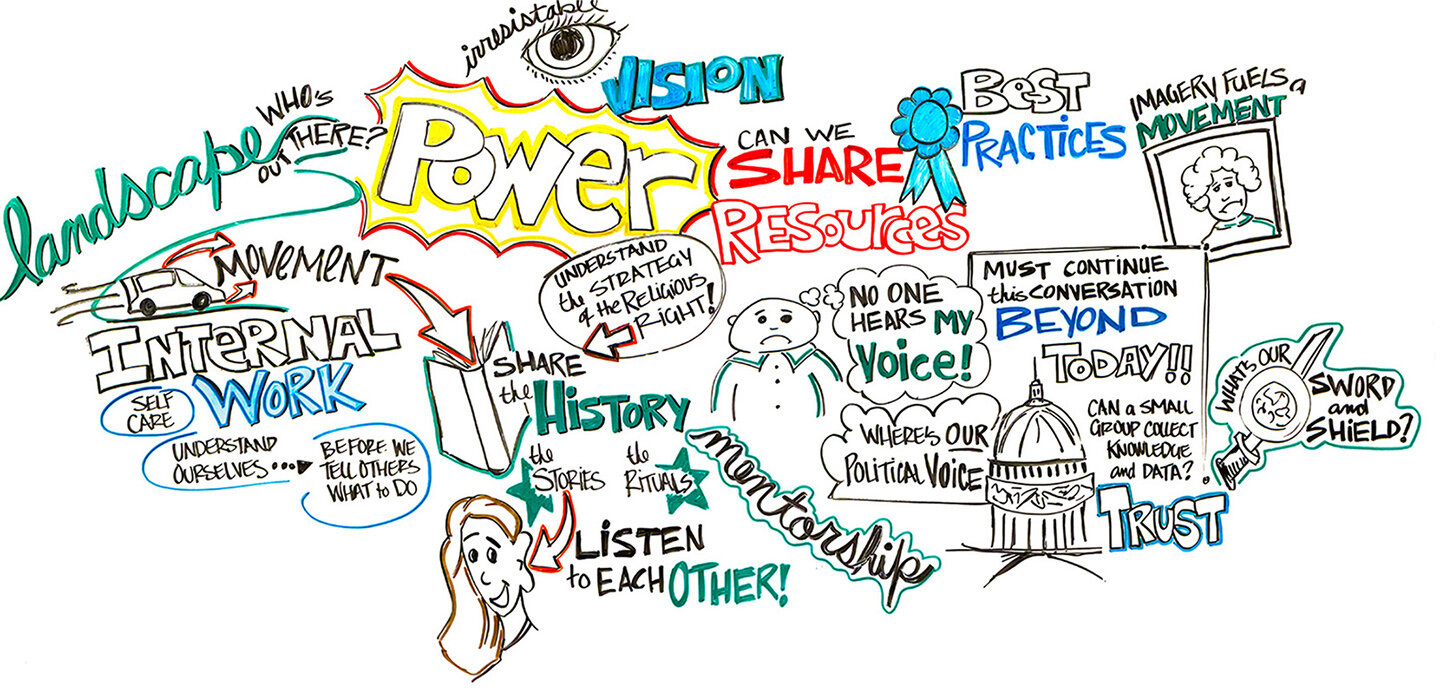 irresistable
VISION
landscape
WHO'S
OUT THERE?
POWER
CAN WE
SHARE
RESOURCES
BEST
PRACTICES
IMAGERY FUELS a
MOVEMENT
MOVEMENT
INTERNAL
WORK
SELF
CARE
UNDERSTAND
OURSELVES...
BEFORE WE
TELL OTHERS
WHAT to DO
UNDERSTAND
the STRATEGY
of the RELIGIOUS
RIGHT!
SHARE
the HISTORY
the
STORIES
the
RITUALS
LISTEN
to EACH OTHER!
mentorship
NO ONE
HEARS MY
VOICE!
WHERE'S OUR
POLITICAL VOICE
MUST CONTINUE
this CONVERSATION
BEYOND
TODAY!!
CAN a SMALL
GROUP COLLECT
KNOWLEDGE
and DATA?
TRUST
WHAT'S OUR
SWORD
and
SHIELD?